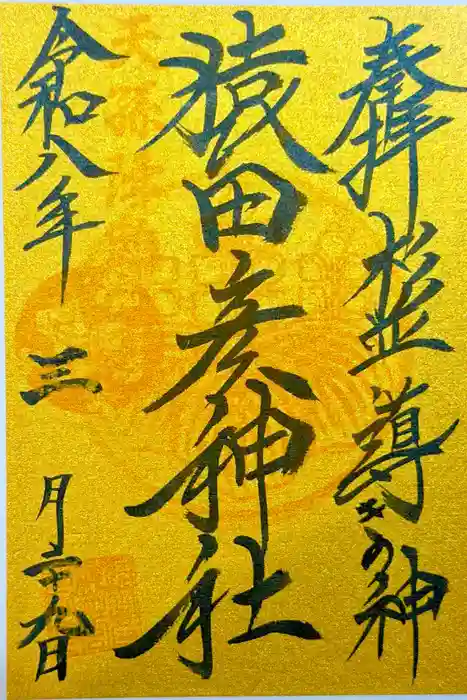 奉拝 杉並 導きの神
猿田彦神社
令和八年三月二十九日